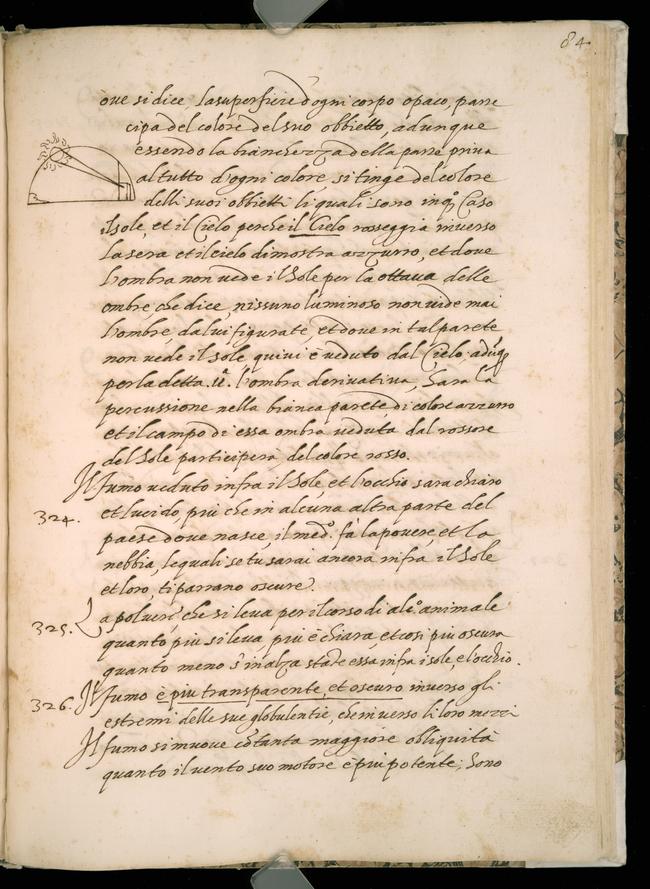 84
oue si dice, la superficie d'ogni corpo opaco, parte
cipa del colore del suo obbietto, adunque
essendo la bianchezza della parete priua
al tutto d'ogni colore, si tinge del colore
delli suoi obbietti li quali sono in q.o Caso
il sole, et il Cielo perche il Cielo rosseggia inuerso
la sera et il cielo dimostra azzurro, et doue
l'ombra non uede il Sole per la ottaua delle
ombre, che dice, nissuno luminoso non uide mai
l'ombre da lui figurate, et doue in tal parete
non uede il sole quiui è ueduto dal Cielo, adūq
per la detta .u.a l'ombra deriuatiua, sara la
percussione nella bianca parete di colore azzurro
et il campo di essa ombra ueduta dal rossore
del Sole participera del colore rosso.
Il fumo ueduto infra il Sole, et l'occhio sara chiaro
324. et lucido, più che in alcuna altra parte del
paese doue nasce, il med.o fa la poluere, et la
nebbia, le quali se tu sarai ancora infra il Sole
et loro, ti parrano oscure.
325. La poluere che si leua per il corso di alc.o animale
quanto piu si leua, piu è chiara, et cosi piu oscura
quanto meno s'inalza stante essa infra i sole, e l'occhio.
326. Il fumo è piu transparente, et oscuro inuerso gli
estremi delle sue globulentie, che inuerso li loro mezzi
Il fumo si muoue cō tanta maggiore obliquità
quanto il uento suo motore è piu potente; sono